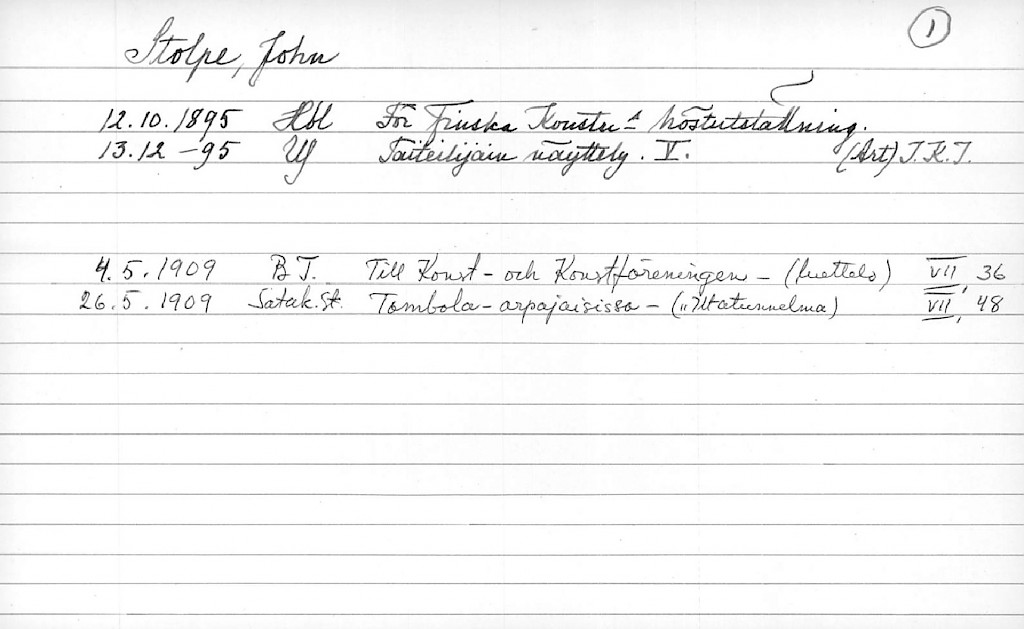 1
Stolpe, John
12.10.1895 Hbl För Finska Konstn:s höstutställning.
13.12 -95 US Taiteilijain näyttely. V. (Art) J.K.I.
4.5.1909 B T. Till Konst- och Konstföreningen - (luettelo) VII, 36
26.5.1909 Satak.St. Tombola-arpajaisissa - („Iltatunnelma) VII, 48